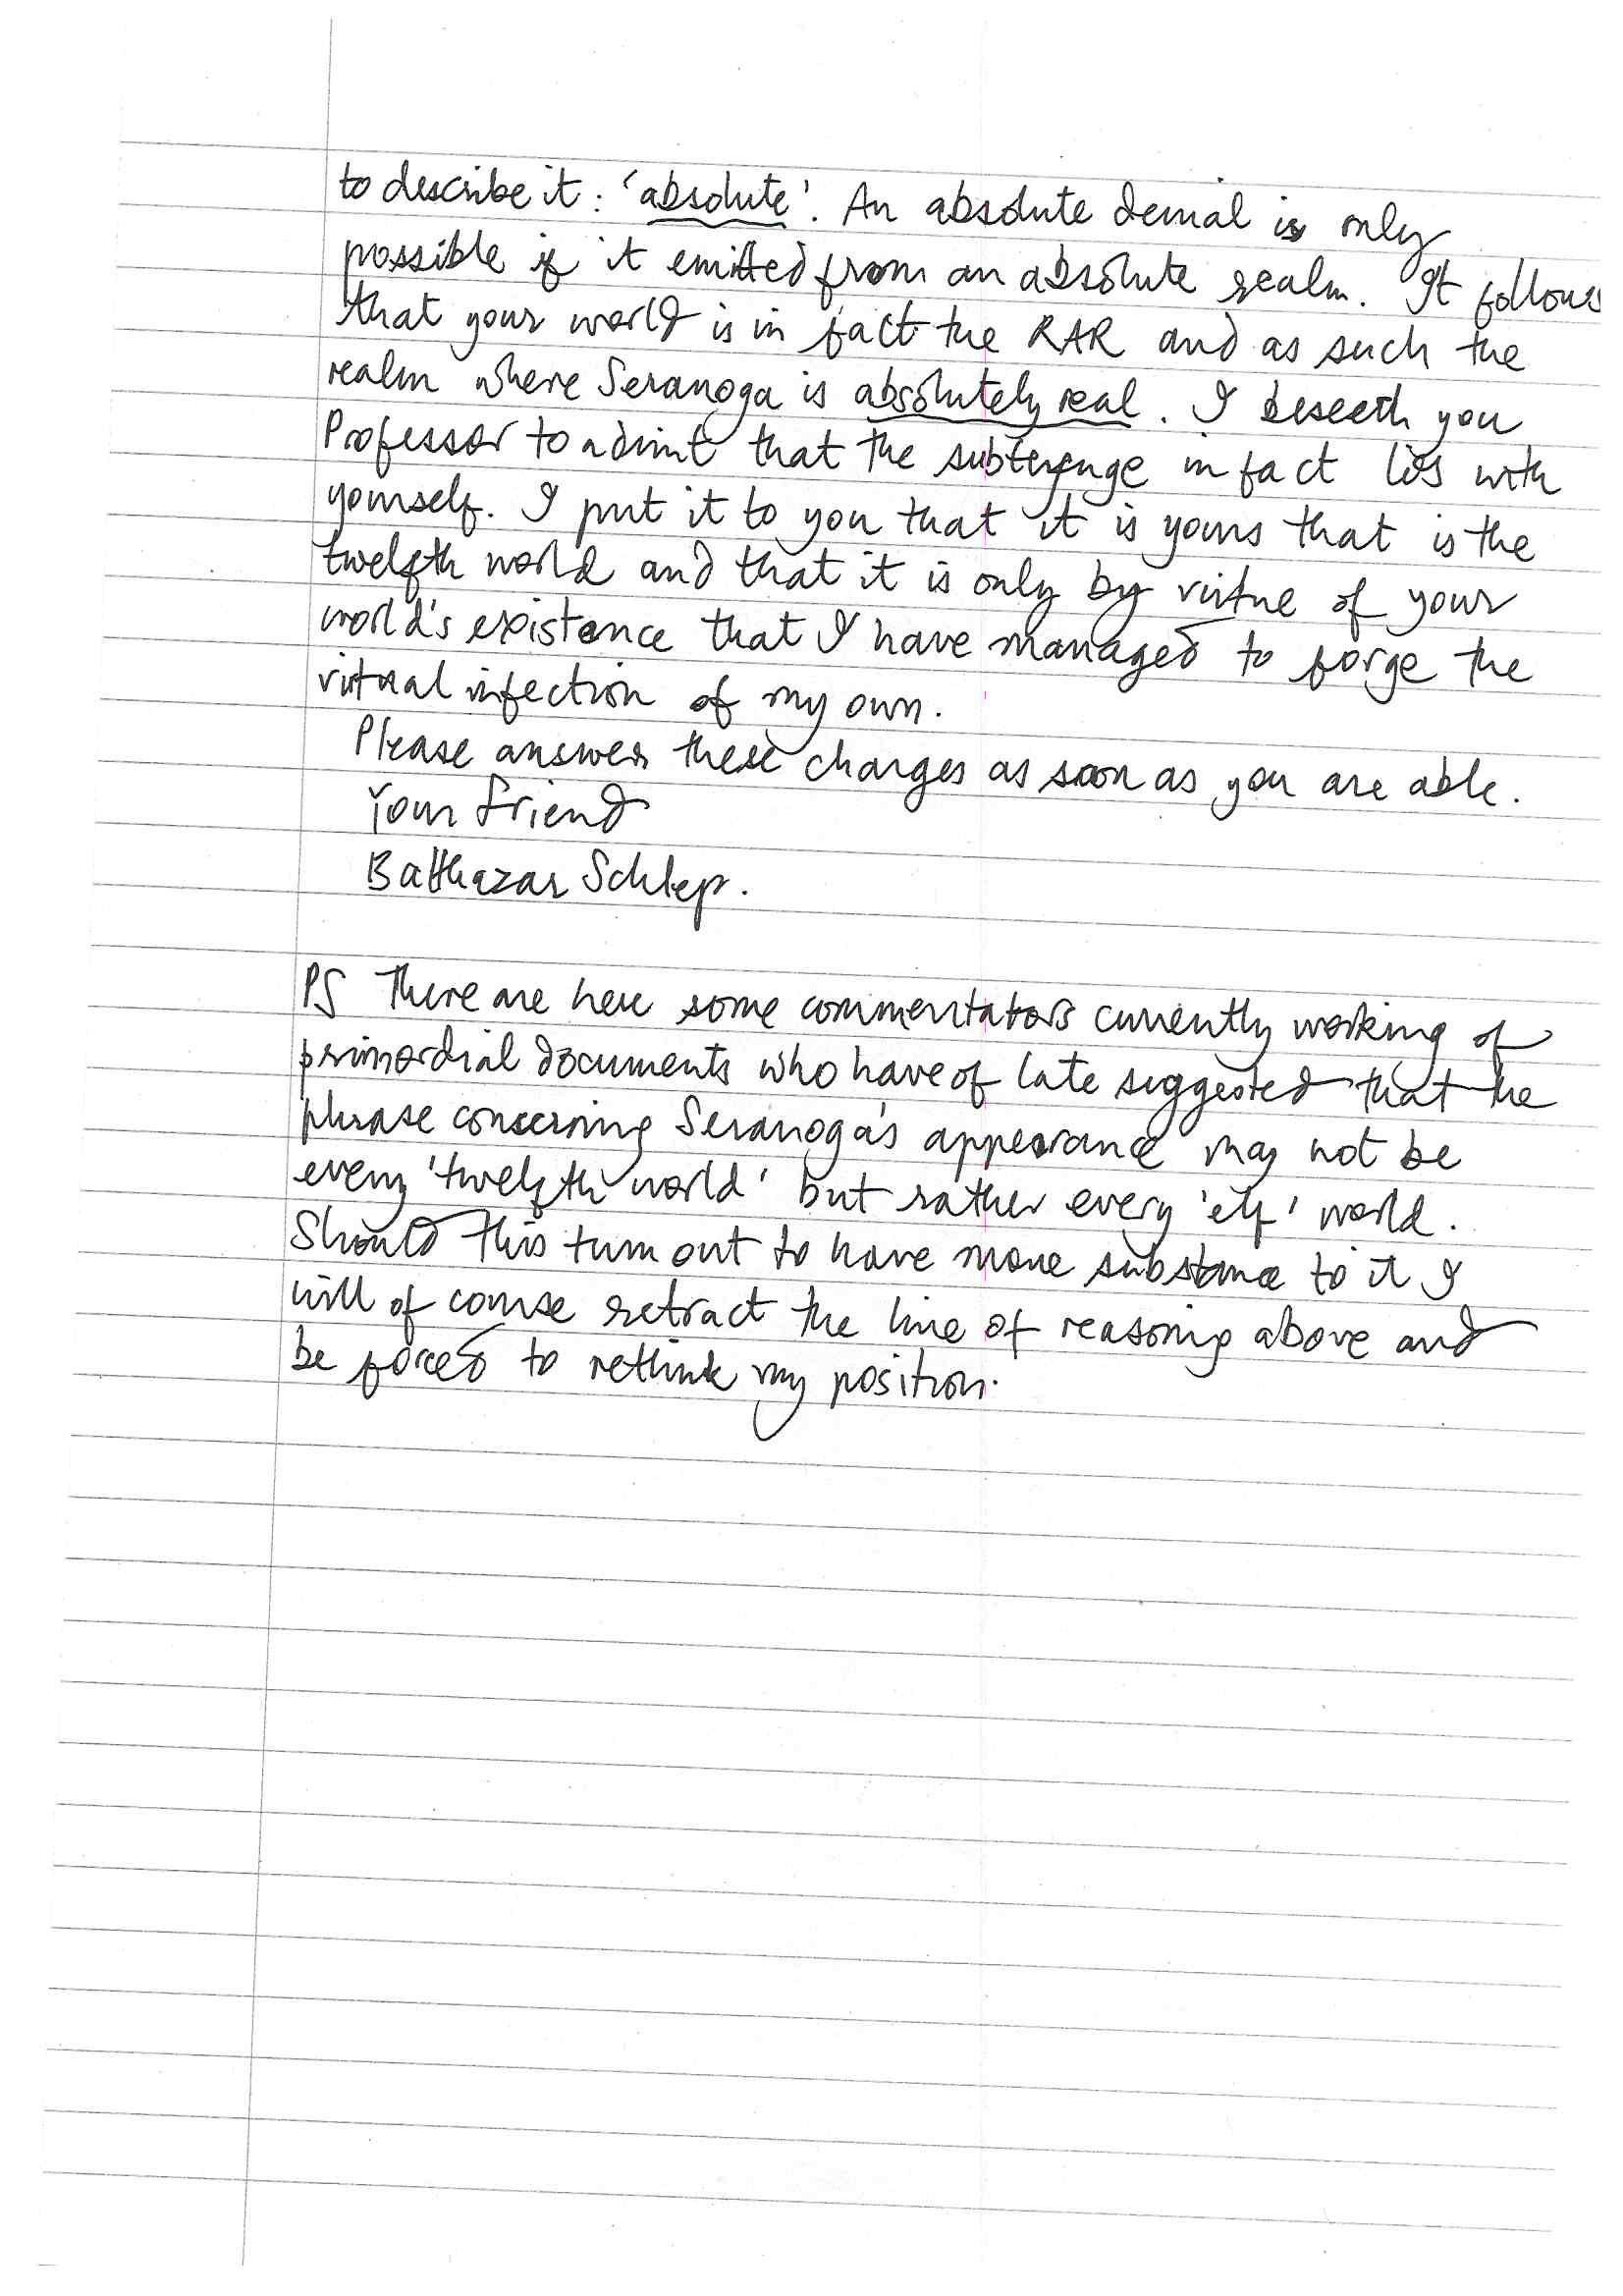 to describe it: 'absolute'. An absolute denial is only
possible if it emitted from an absolute realm. It follows
that your world is in fact the RAR and as such the
realm where Seranoga is absolutely real. I beseech you
Professor to admit that the subterfuge in fact lies with
yourself. I put it to you that it is yours that is the
twelfth world and that it is only by virtue of your
world's existence that I have managed to forge the
virtual infection of my own.
Please answer these charges as soon as you are able.
Your friend
Balthazar Schlep.
PS There are here some commentators currently working of
primordial documents who have of late suggested that the
phrase concerning Seranoga's appearance may not be
every 'twelfth world' but rather every 'elf' world.
Should this turn out to have more substance to it I
will of course retract the line of reasoning above and
be forced to rethink my position.